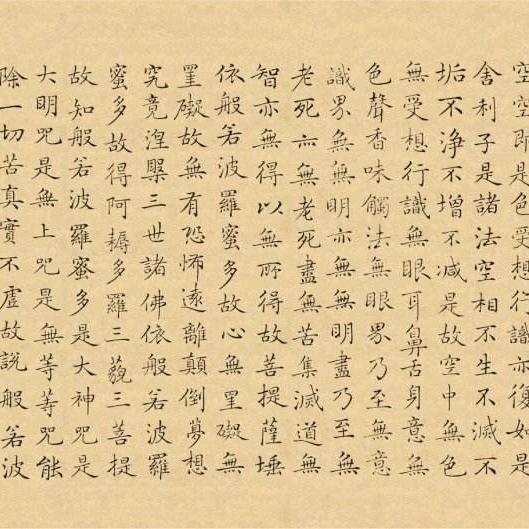 空空即是色受想行識亦復如是
舍利子是諸法空相不生不滅不
垢不淨不增不减是故空中無色
無受想行識無眼耳鼻舌身意無
色聲香味觸法無眼界乃至無意
識界無無明亦無無明盡乃至無
老死亦無老死盡無苦集滅道無
智亦無得以無所得故菩提薩埵
依般若波羅蜜多故心無罣礙無
罣礙故無有恐怖遠離顛倒夢想
究竟涅槃三世諸佛依般若波羅
蜜多故得阿耨多羅三藐三菩提
故知般若波羅蜜多是大神咒是
大明咒是無上咒是無等等咒能
除一切苦真實不虛故說般若波